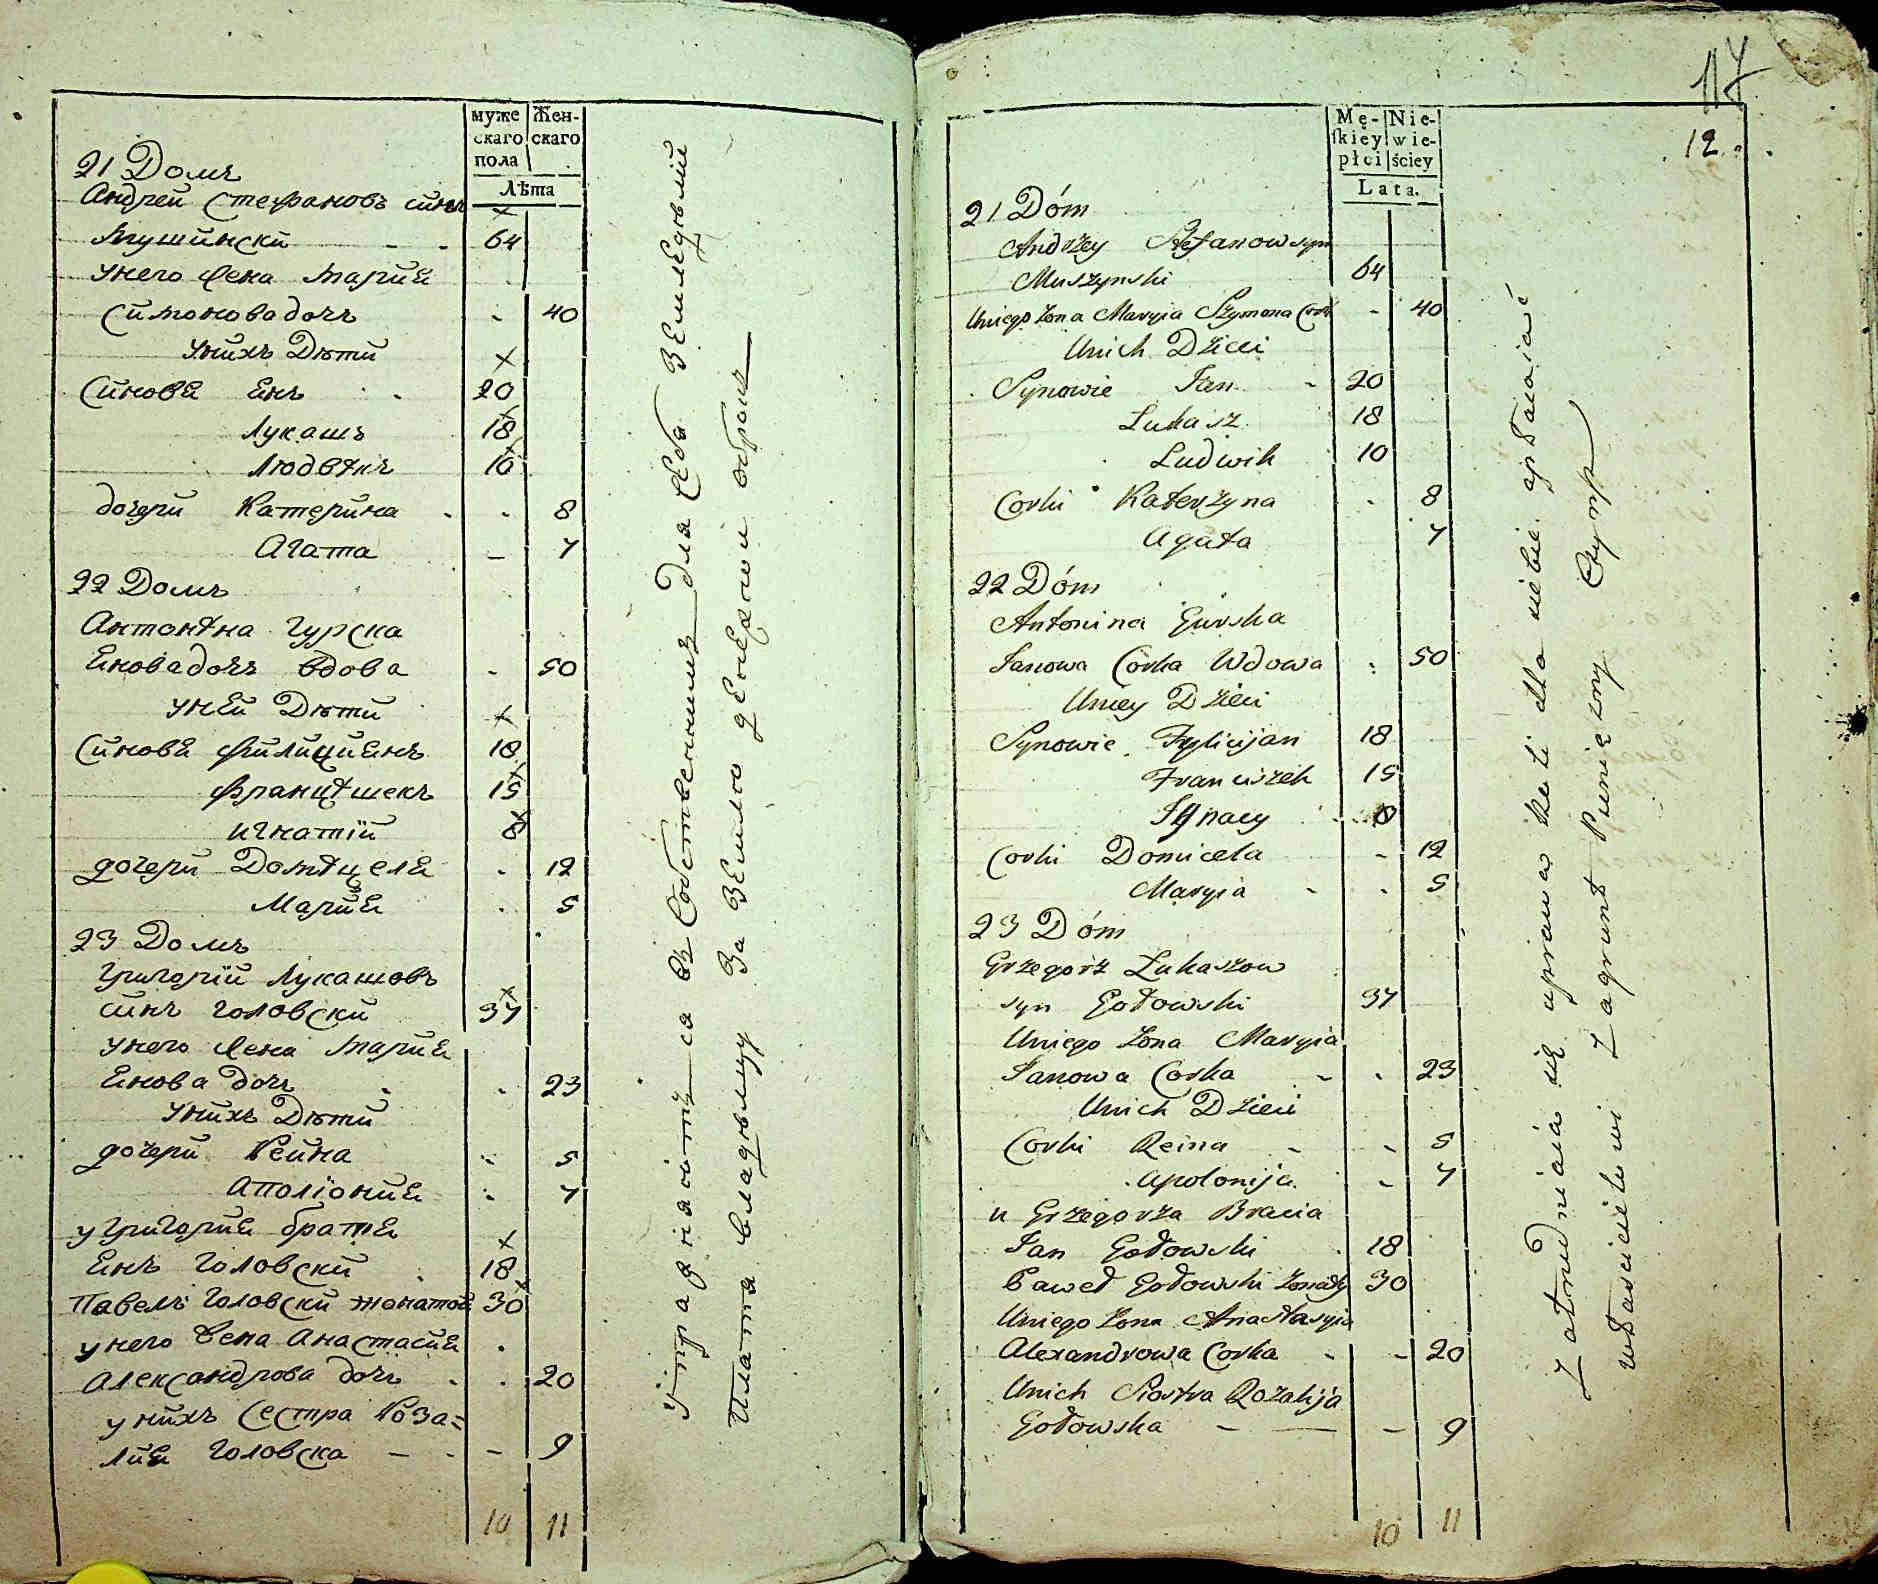 муже
скаго
пола
Жен-
скаго
Лѣта
21 Домъ
Андрей Стефановъ синъ
Мушински - - 64
унего Жена Марыя
Симонова дочъ - 40
Унихъ Дѣти
Синовя Янъ . 20
Лукашъ 18
Людвикъ 10
дочери Катерина - - 8
Агата - 7
22 Домъ
Антонина Гурска
Янова дочъ вдова - 50
уней Дѣти
Синовя Филициянъ 18
Францишекъ 15
Игнатiй 8
дочери Домицеля - 12
Марыя . 5
23 Домъ
Григорiй Лукашовъ
синъ Головски 37
унего Жена Марыя
Янова дочъ . 23
Унихъ Дѣти
дочери Реина 5
Аполiония 7
у Григория братя
Янъ Головски . 18
Павелъ Головски жонатой 30
у него Жена Анастасия
Александрова дочъ - . 20
у нихъ Сестра Роза=
лия Головска - - - 9
10 11
Упражняютъ-ся въ Собственнимъ для Себя Земледѣлiи
Плата владѣлцу За Землю денежной оброкъ
117
12.
Mę-
skiey
płci
Nie-
wie-
ściey
Lata.
21 Dóm
Andrzey Stefanow syn
Muszynski 64
Uniego Zona Maryia Szymona Cork - 40
Unich Dzieci
Synowie Jan - 20
Lukasz 18
Ludwik 10
Corki Katerzyna - 8
Agata 7
22 Dóm
Antonina Gurska
Janowa Corka Wdowa : 50
Uniey Dzieci
Synowie Fylicijan 18
Franciszek 15
Ignacy 8
Corki Domicela - 12
Maryia - - 5
23 Dóm
Grzegorz Łukaszow
syn Gołowski 37
Uniego Zona Maryia
Janowa Corka - - 23
Unich Dzieci
Corki Reina - - 5
Apolonija - 7
u Grzegorza Bracia
Jan Gołowski . 18
Paweł Gołowski Zonaty 30
Uniego Zona Anastasyia
Alexandrowa Corka - - 20
Unich Siostra Rozalija
Gołowska - — - 9
10 11
Zatrudniaia się uprawa Roli dla siebie opłaciaiąć
właścicielowi Zagrunt Pieniężny Czynsz